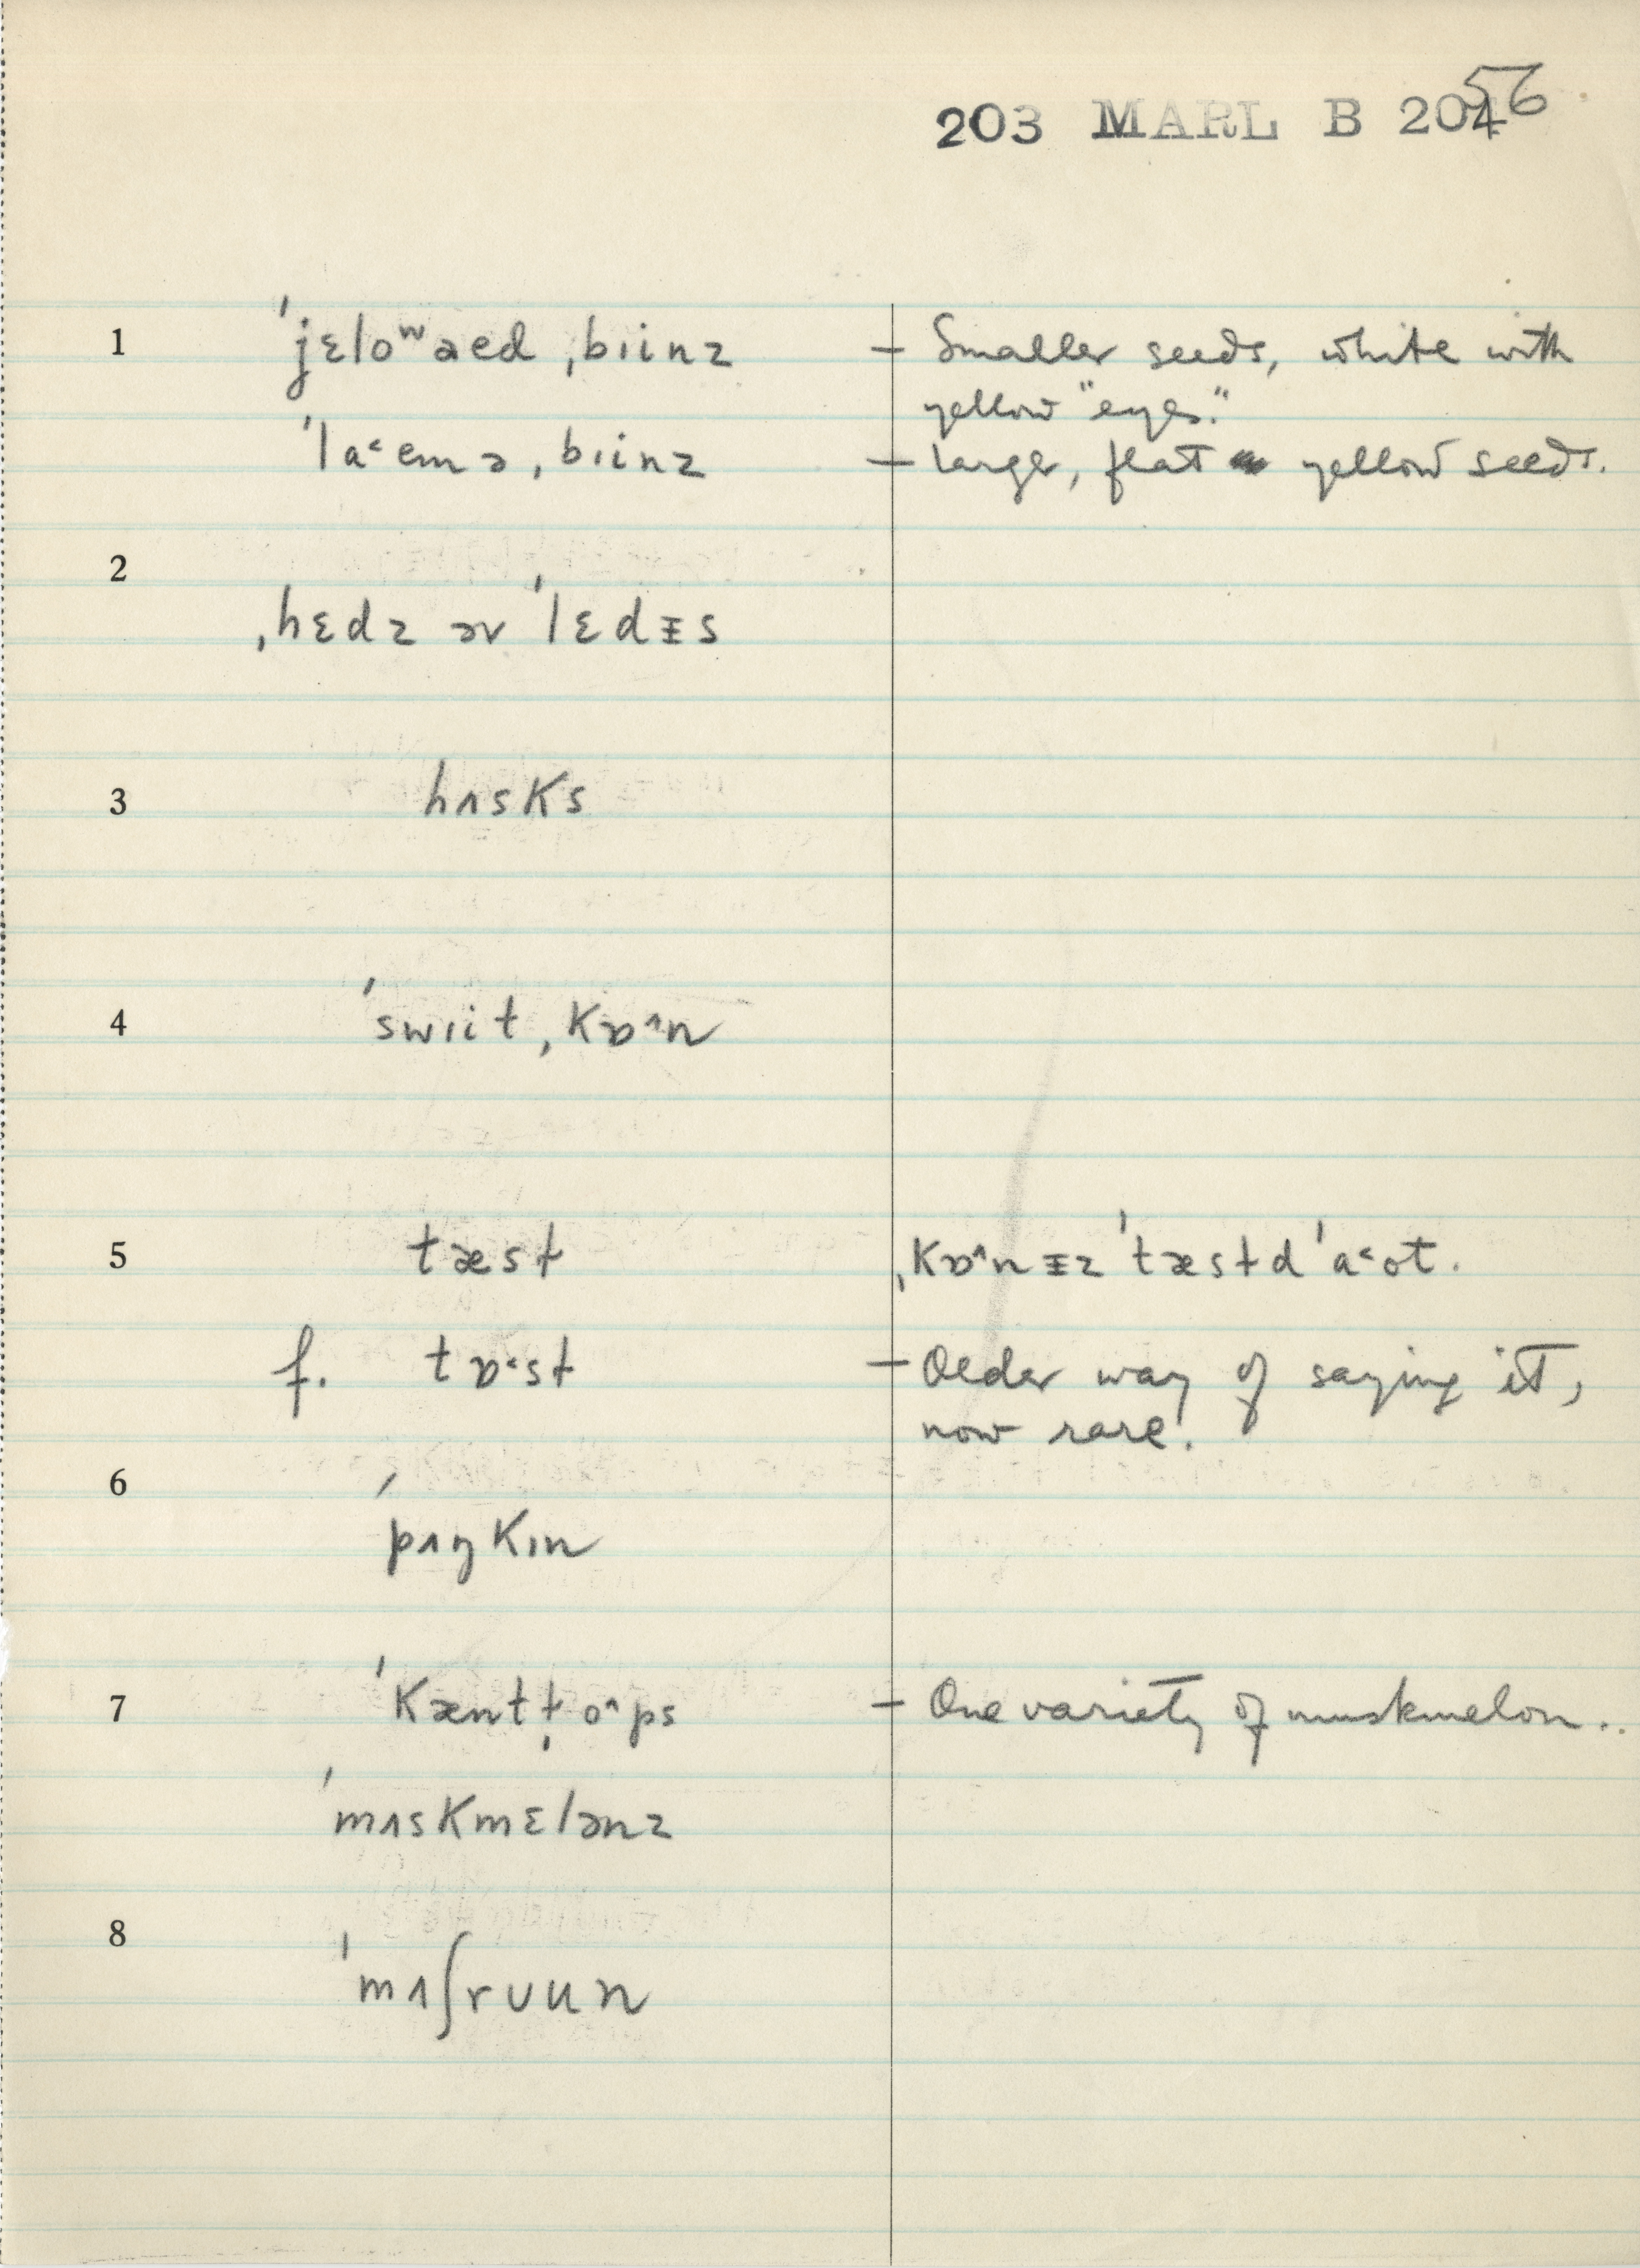 203 MARL B 204 56
1 ˈjɛloʷaed ˌbɪinz – Smaller seeds, white with
yellow "eyes."
ˈla˂emə ˌbɪinz – Large, flat yellow seeds.
2
ˌhɛdz əv ˈlɛdᵻs
3 hʌsks
4 ˈswɪit ˌkɒ^n
5 tæst ˌkɒ^nᵻz ˈtæstd ˈa˂ot.
f. tɒ˂st – Older way of saying it,
now rare.
6
ˈpʌŋkɪn
7 ˈkænt ˌto^ps – One variety of muskmelon..
ˈmʌskmɛlənz
8
ˈmʌʃrʊun